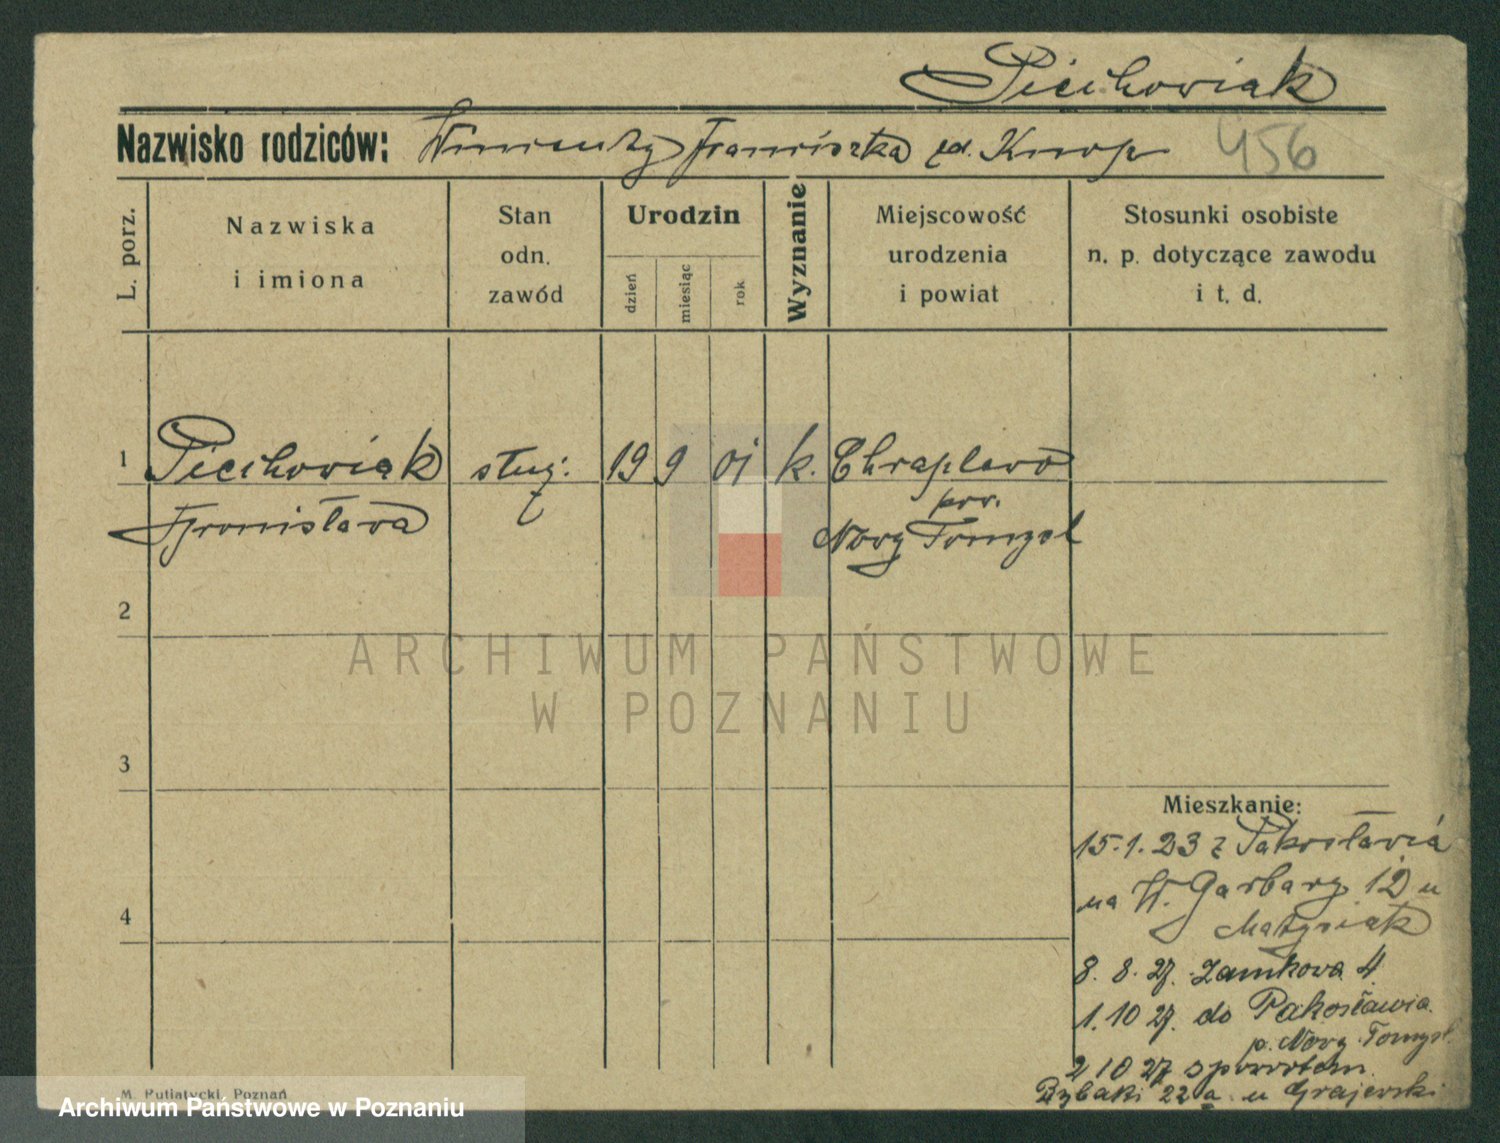 Piechowiak
Nazwisko rodziców: Wincenty Franciszka zd. Knop 456
L. porz.
Nazwiska
i imiona
Stan
odn.
zawód
Urodzin
dzień
miesiąc
rok
Wyznanie
Miejscowość
urodzenia
i powiat
Stosunki osobiste
n. p. dotyczące zawodu
i t. d.
1 Piechowiak służ. 19 9 01 k. Chraplewo
Bronisława pow.
Nowy Tomysl
2
ARCHIWUM PAŃSTWOWE
W POZNANIU
3
Mieszkanie:
15.1.23 z Pakosławia
na W. Garbary 12 u
Matysiak
4
8. 8. 27. Zamkowa 4
1. 10 27. do Pakosławia
p. Nowy Tomysl.
2 10 27 spowrotem
Rybaki 22a u Grajewski
M. Putiatycki, Poznań
Archiwum Państwowe w Poznaniu